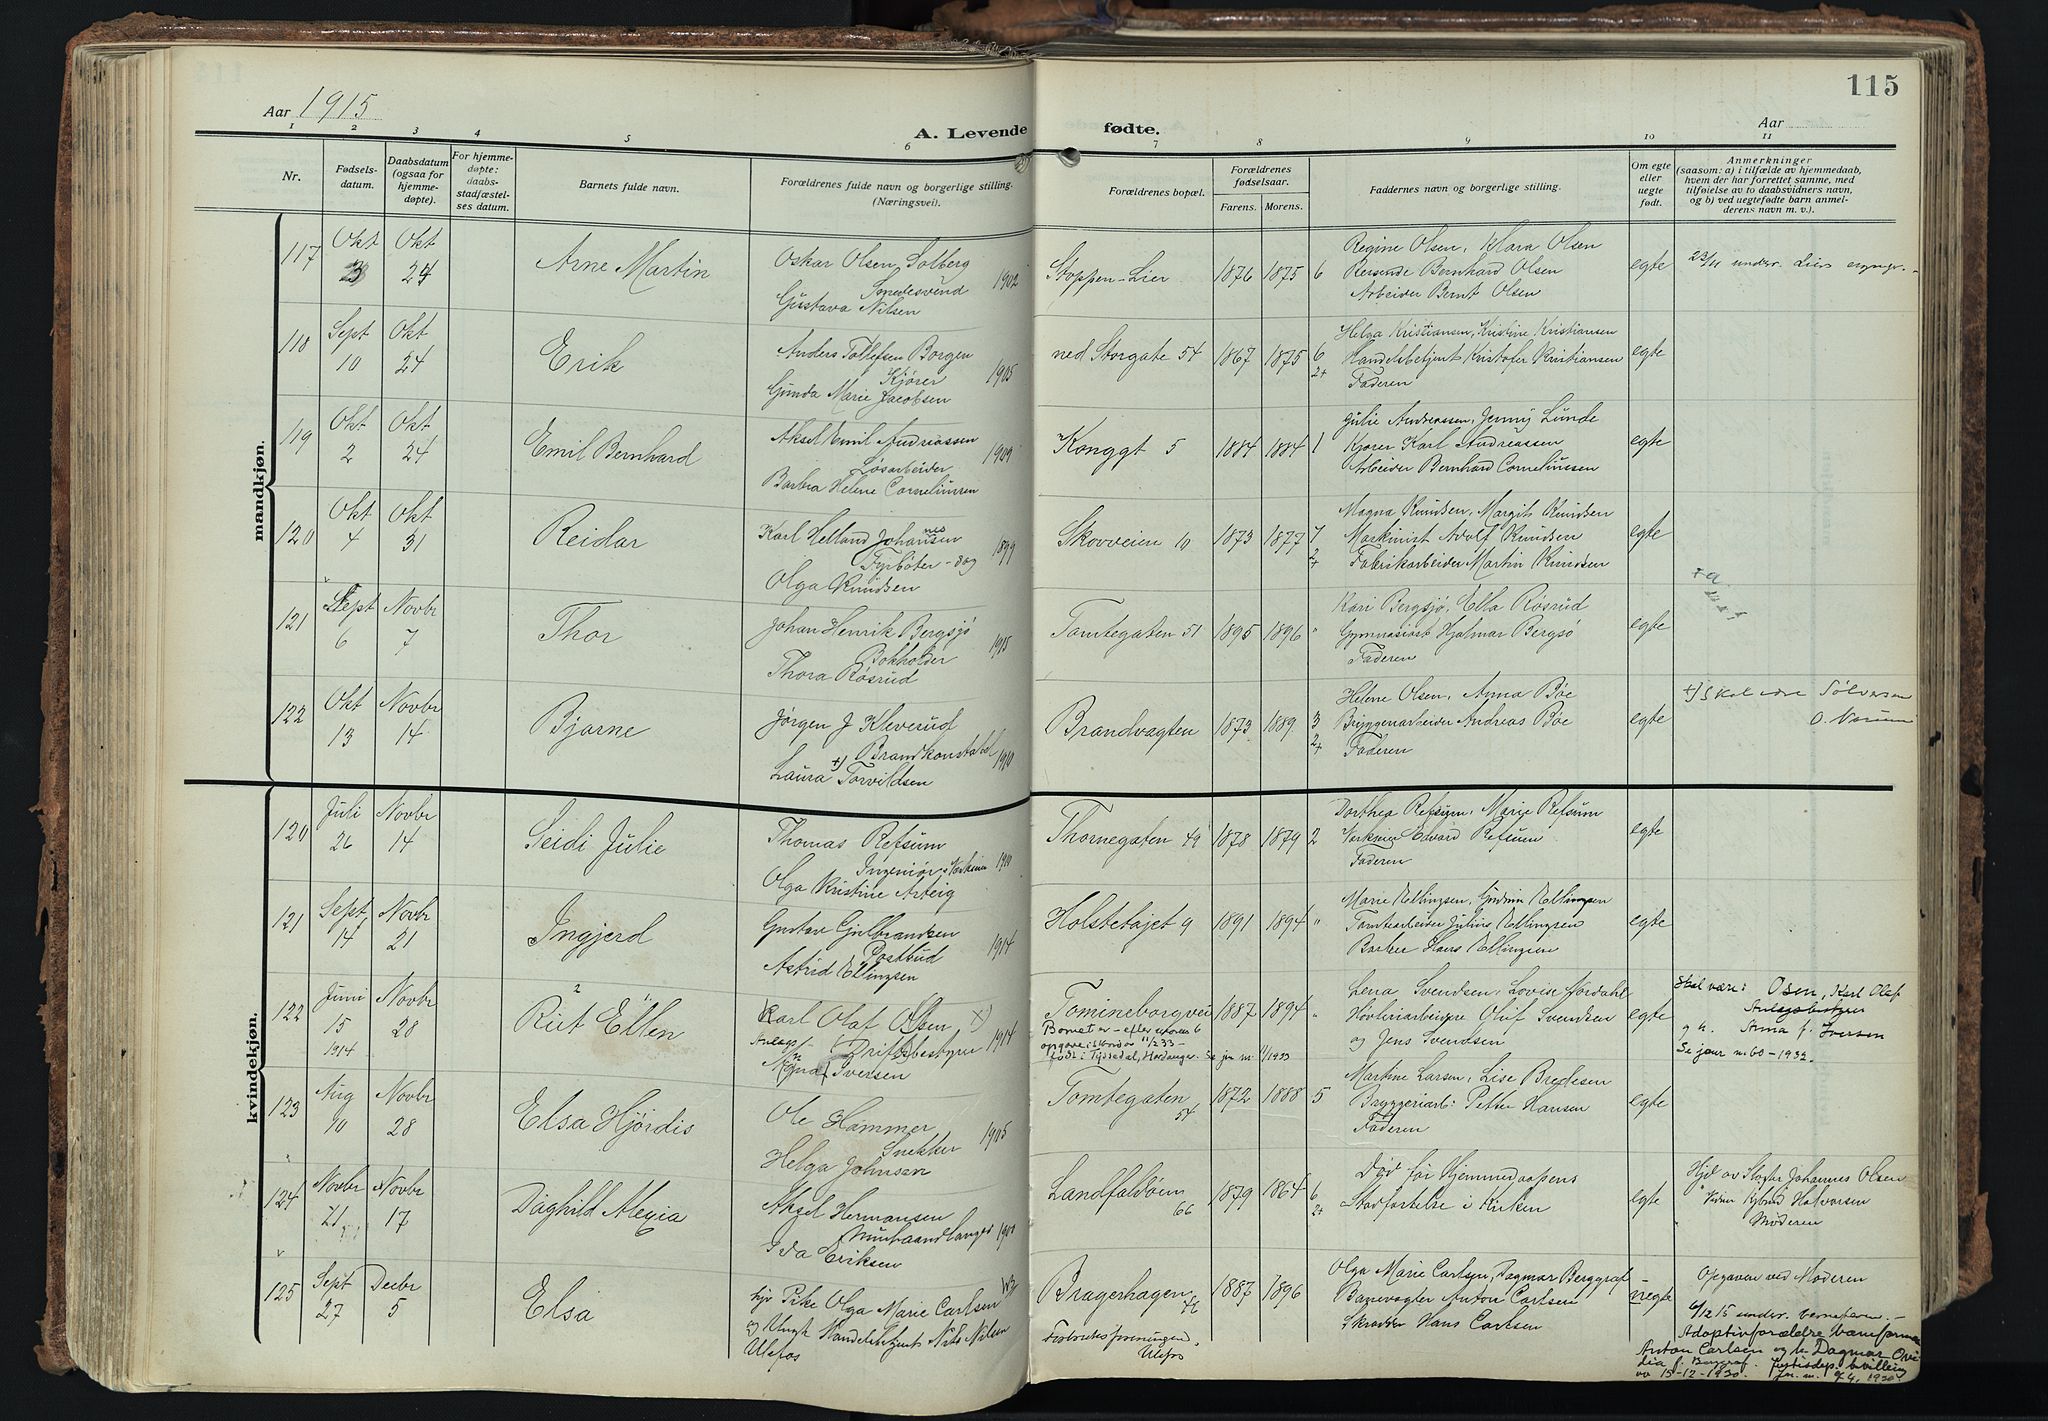 115
Aar 1915
A. Levende fødte.
Aar
1 2 3 4 5 6 7 8 9 10 11
Nr.
Fødselsdatum.
Daabsdatum (ogsaa for hjemmedøpte).
For hjemmedøpte: daabsstadfæstelses datum.
Barnets fulde navn.
Forældrenes fulde navn og borgerlige stilling. (Næringsvei).
Forældrenes bopæl.
Forældrenes fødselsaar.
Farens. Morens.
Faddernes navn og borgerlige stilling.
Om egte eller uegte født.
Anmerkninger
(saasom: a) i tilfælde av hjemmedaab, hvem der har forrettet samme, med tilføielse av to daabsvidners navn, og b) ved uegtefødte barn anmelderens navn m. v.).
mandkjøn.
117 Okt 3 Okt 24 Arne Martin
Oskar Olsen Solberg
Smedesvend
Gustava Nilsen 1902
Stoppen-Lier 1876 1875 6
Regine Olsen, Klara Olsen
Reisende Bernhard Olsen
Arbeider Bernt Olsen
egte
23/11 underr. Liers
118 Sept 10 Okt 24 Erik
Anders Tollefsen Borgen
Kjører
Gunda Marie Jacobsen 1905
ned Storgate 54 1867 1875 6 2+
Helga Kristiansen, Kristine Kristiansen
Handelsbetjent Kristofer Kristiansen
Faderen
egte
119 Okt 2 Okt 24 Emil Bernhard
Aksel Emil Andreassen
Løsarbeider
Barbra Helene Corneliussen 1909
Konggt 5 1884 1884 1
Julie Andreassen, Jenny Lunde
Kjører Karl Andreassen
Arbeider Bernhard Corneliussen
egte
120 Okt 4 Okt 31 Reidar
Karl Helland Johansen
nes
Fyrbøter
Olga Knudsen 1899
Skovveien 10 1873 1877 7 2+
Magna Knudsen, Margith Knudsen
Maskinist Adolf Knudsen
Fabrikarbeider Martin Knudsen
egte
121 Sept 6 Novbr 7 Thor
Johan Henrik Bergsjø
Bokholder
Thora Røsrud 1915
Tomtegaten 51 1895 1896 "
Kari Bergsjø, Ella Røsrud
Gymnasiast Hjalmar Bergsø
Faderen
egte
122 Okt 13 Novbr 14 Bjarne
Jørgen J Kleverud
+) Brandkonstabel
Laura Torvildsen 1910
Brandvagten 1873 1889 3 2+
Helene Olsen, Anna Bøe
Bryggearbeider Andreas Bøe
Faderen
egte
+) Skal være Sølversen
kvindekjøn.
120 Juli 26 Novbr 14 Seidi Julie
Thomas Refsum
Ingeniør
Olga Kristine Arteig
Thornegaten 49 1878 1879 2
Dorthea Refsum, Marie Refsum
Verkseier Edvard Refsum
Faderen
egte
121 Sept 14 Novbr 21 Ingjerd
Gustav Gulbrandsen
Postbud
Astrid Ellingsen 1914
Holstetøjet 9 1891 1894 "
Marie Ellingsen, Gudrun Ellingsen
Tomtearbeider Julius Ellingsen
Barber Hans Ellingsen
egte
122 Juni 15 1914 Novbr 28 Rut Ellen
Karl Olaf Olsen x)
Anlags/- Driftsbestyrer
Agna Iversen 1914
Tomineborgvei 1887 1894 "
Barnet er - efter
født i Tyssedal, Hardanger.
Lena Svendsen, Lovise Nordahl
Høvleriarbeidere Oluf Svendsen
og Jens Svendsen
egte
Skal være: Osen, Karl Olaf
Anlagsbestyrer
g h. Anna f. Iversen
Se jour n 60-1932
123 Aug 10 Novbr 28 Elsa Hjørdis
Ole Hammer
Snekker
Helga Johnsen 1905
Tomtegaten 54 1872 1888 5
Martine Larsen, Lise Bredesen
Bryggeriarb: Petter Hansen
Faderen
egte
124 Novbr 21 Novbr 17 Daghild Alexia
Aksel Hermansen
Murhaandlanger
Ida Eriksen
Landfaldøien 66 1879 1864 6 2+
Død før Hjemmedaapens
Stadfestelse i Kirken
egte
Hjd av Skofør Johannes Olsen
Halvorsen
Moderen
125 Sept 27 Decbr 5 Elsa
tjp Pike Olga Marie Carlsen
og Ungk Handelsbetjent Nils Nilsen
Ulefos
Bragerhagen 1887 1896
Ulefos
Olga Marie Carlsen, Dagmar Berggraf
Banevogter Anton Carlsen
Skrædder Hans Carlsen
uegte
Opgaven ved Moderen
6/12 15 underr.
Adoptivforældre
Anton Carlsen og h. Dagmar
f. Berggraf. Justisdep. bevilling
av 15-12-1920.